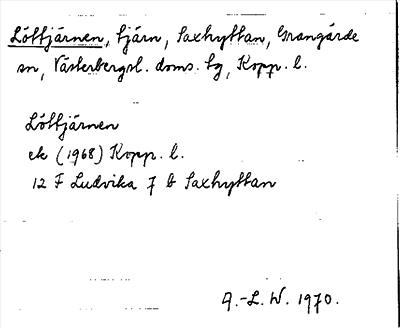 Löttjärnen, tjärn, Saxhyttan, Grangärde
sn, Västerbergsl. doms. tg, Kopp. l.
Löttjärnen
ek (1968) Kopp. l.
12 F Ludvika 7 b Saxhyttan
A.-L. W. 1970.